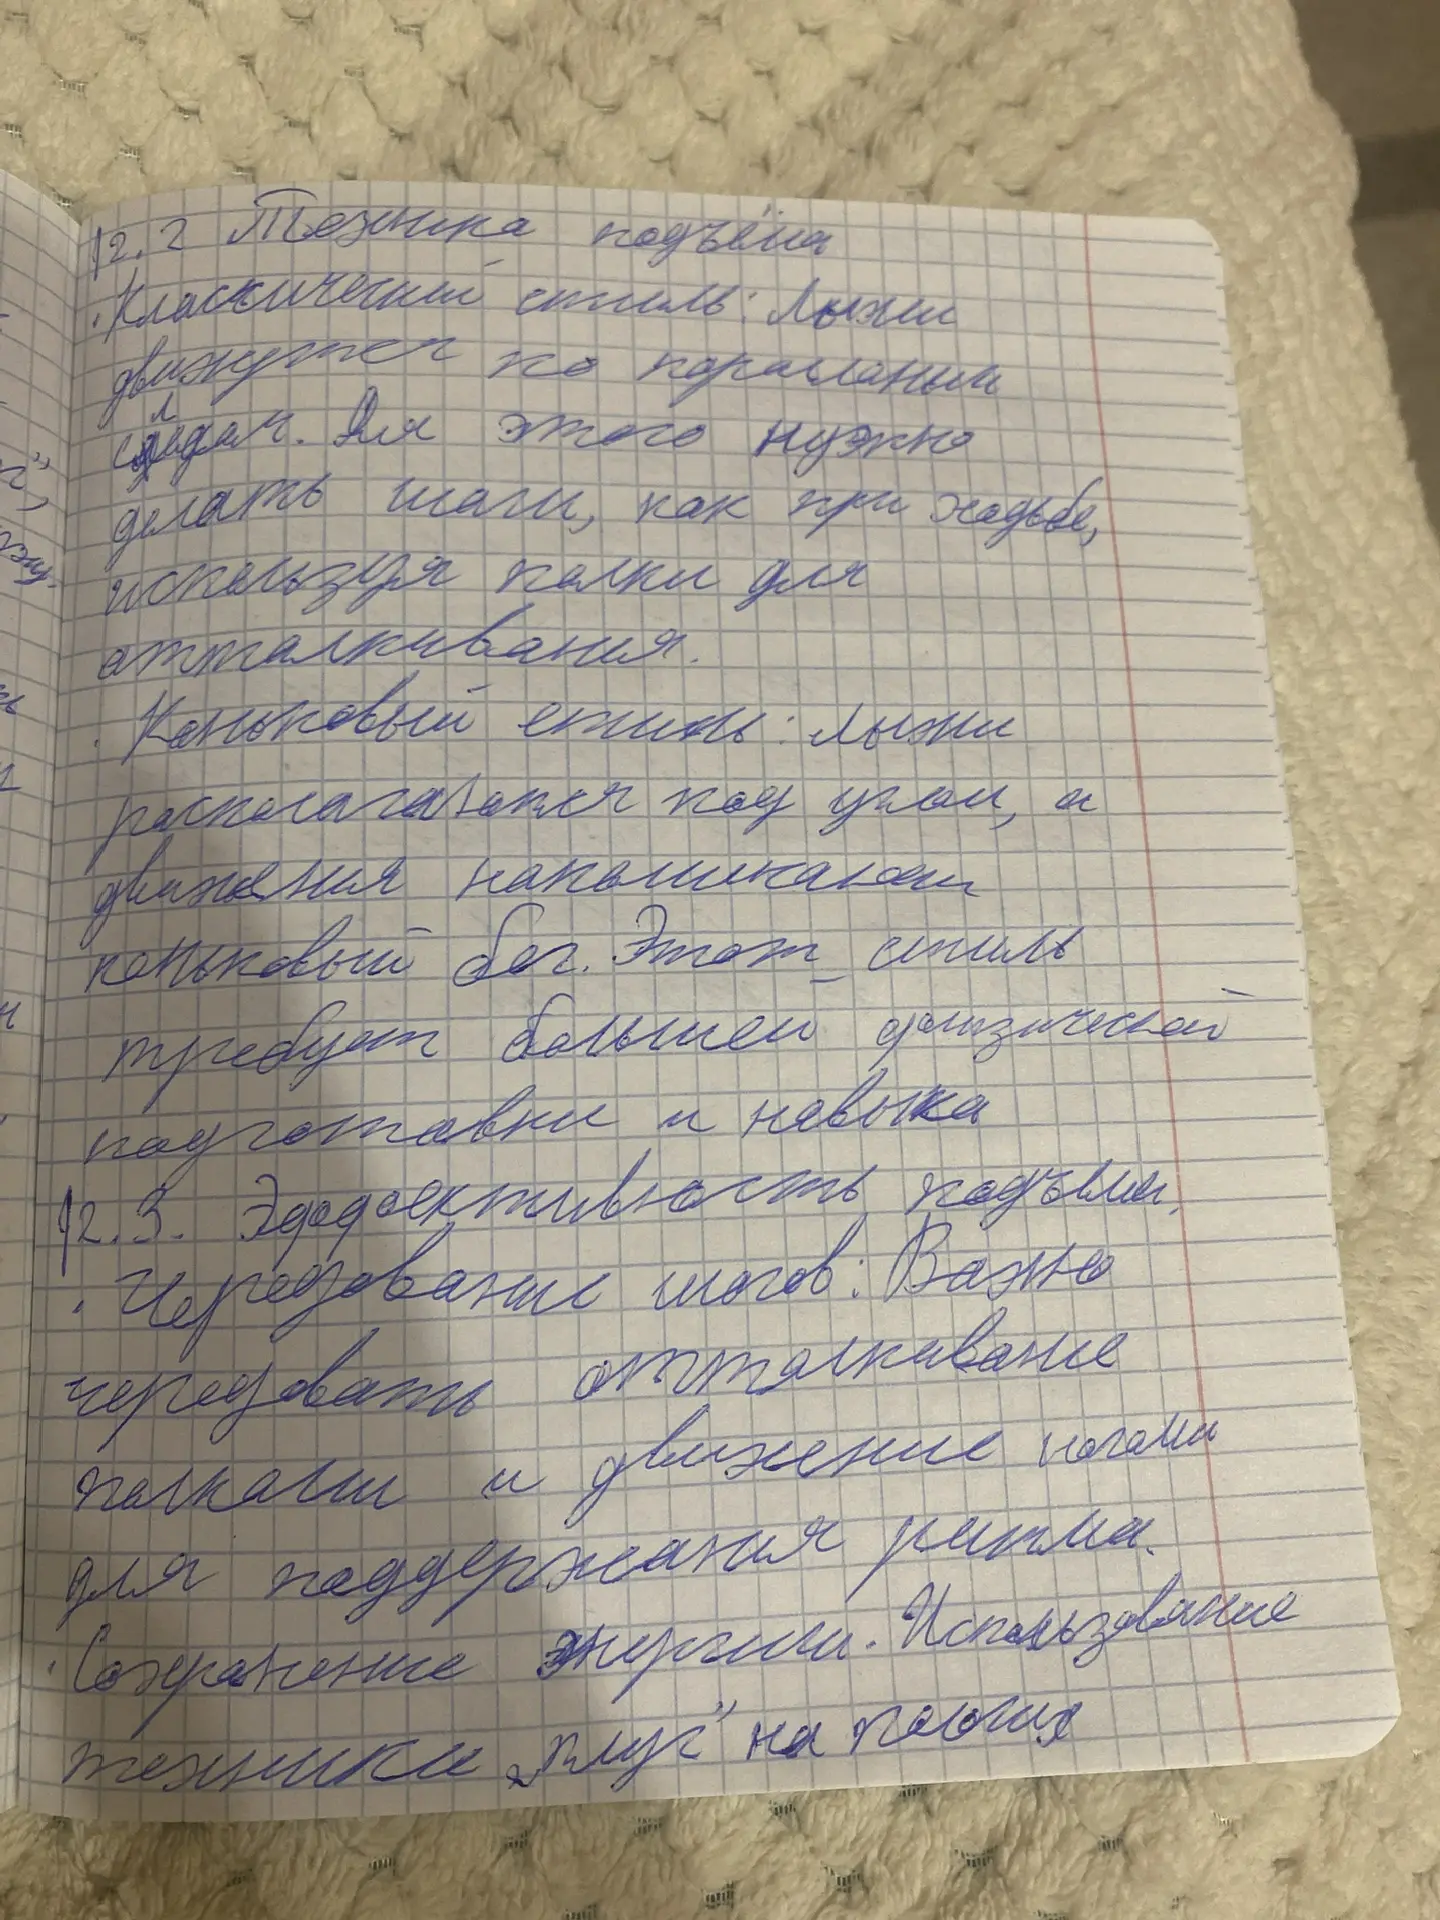 12.2 Техника подъёма
· Классический стиль: Лыжи
движутся по паралланым
следам. Для этого нужно
делать шаги, как при ходьбе,
используя палки для
отталкивания.
· Коньковый стиль: лыжи
располагаются под углом, а
движения напоминают
коньковый бег. Этот стиль
требует большей физической
подготовки и навыка
12.3. Эффективность подъёма.
· Чередование шагов: Важно
чередовать отталкивание
палками и движение ногами
для поддержания ритма.
· Сохранение энергии. Использование
техники „плуг" на пологих